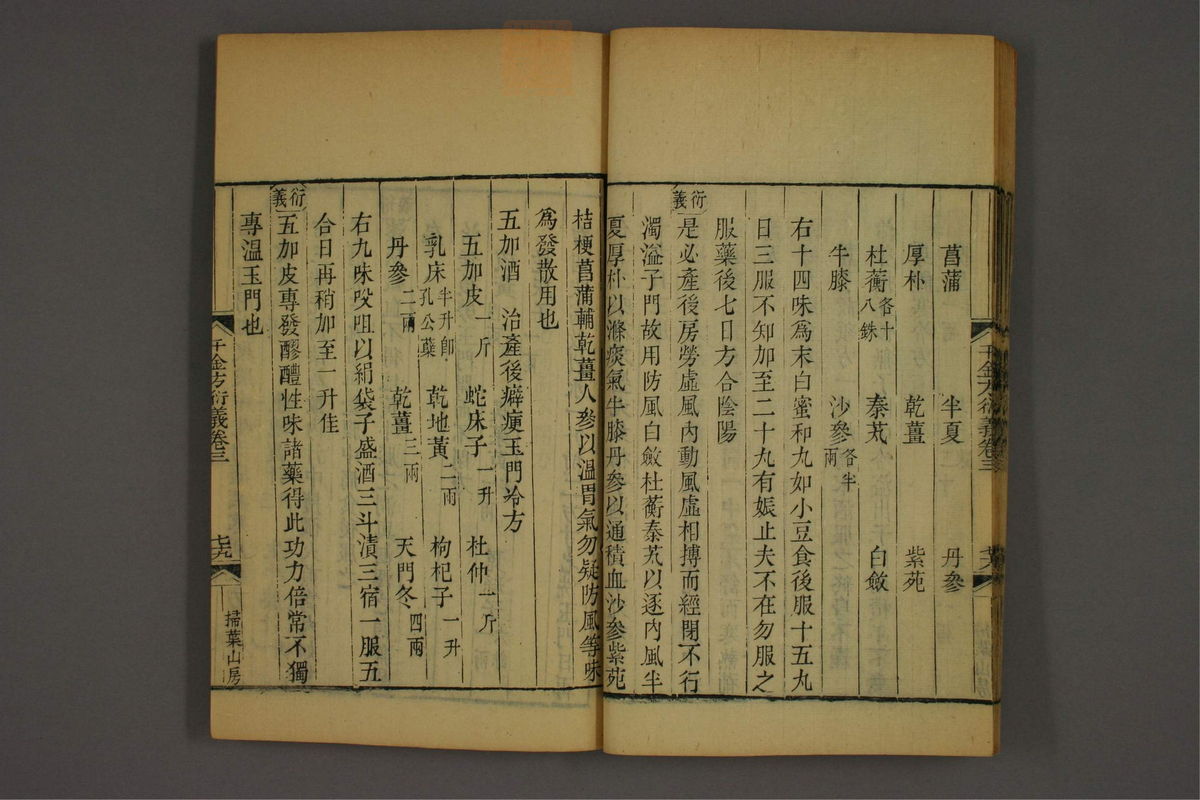 菖蒲 半夏 丹參
厚朴 乾薑 紫苑
杜蘅各十八銖 秦艽 白斂
牛膝 沙參各半兩
右十四味爲末白蜜和丸如小豆食後服十五丸
日三服不知加至二十丸有娠止夫不在勿服之
服藥後七日方合陰陽
衍義
是必產後房勞虛風內動風虛相搏而經閉不行
濁溢子門故用防風白斂杜蘅秦艽以逐內風半
夏厚朴以滌痰氣牛膝丹參以通積血沙參紫苑
桔梗菖蒲輔乾薑人參以溫胃氣勿疑防風等味
爲發散用也
五加酒 治產後癖瘦玉門冷方
五加皮一斤 蛇床子一升 杜仲一斤
乳床半升卽孔公蘖 乾地黃二兩 枸杞子一升
丹參二兩 乾薑三兩 天門冬四兩
右九味㕮咀以絹袋子盛酒三斗漬三宿一服五
合日再稍加至一升佳
衍義
五加皮專發醪醴性味諸藥得此功力倍常不獨
專溫玉門也
千金方衍義卷三
掃葉山房
千金方衍義卷三